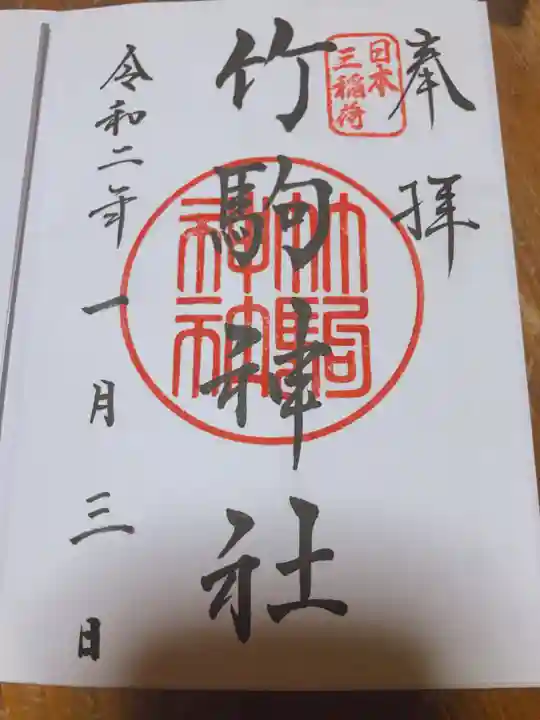 奉拝
日本
三稲荷
竹駒神社
竹駒
神社
令和二年一月三日